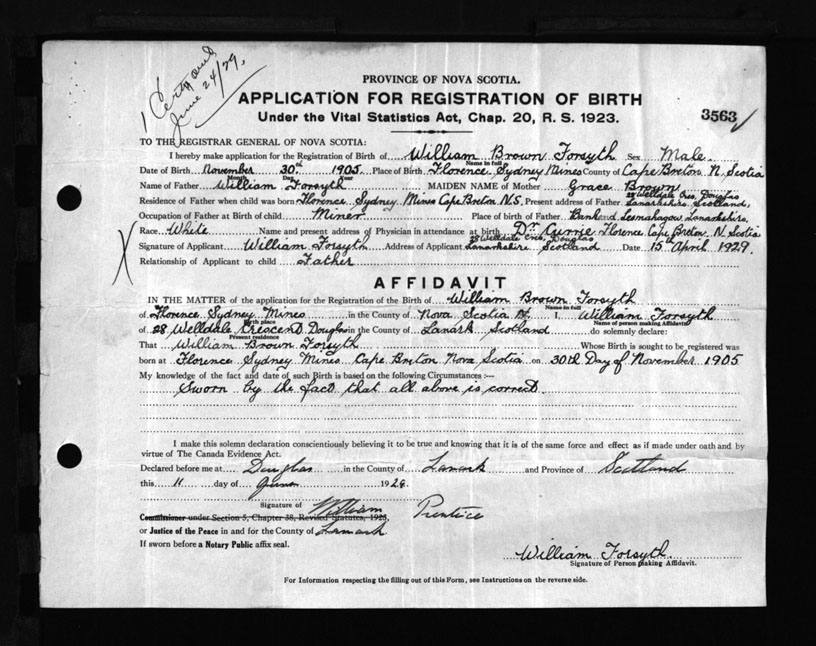 1 Cert and
June 24/29.
PROVINCE OF NOVA SCOTIA.
APPLICATION FOR REGISTRATION OF BIRTH
Under the Vital Statistics Act, Chap. 20, R. S. 1923.
3563
TO THE REGISTRAR GENERAL OF NOVA SCOTIA:
I hereby make application for the Registration of Birth of William Brown Forsyth Sex Male.
Name in full
Date of Birth November 30th 1905 Place of Birth Florence Sydney Mines County of Cape Breton N. Scotia
Month Day Year
Name of Father William Forsyth MAIDEN NAME of Mother Grace Brown
28 Welldale Cres, Douglas
Residence of Father when child was born Florence Sydney Mines Cape Breton N.S. Present address of Father Lanarkshire, Scotland,
Occupation of Father at Birth of child Miner Place of birth of Father Bankend Lesmahagow, Lanarkshire,
Race White Name and present address of Physician in attendance at birth Dr Currie Florence Cape Breton N. Scotia
28 Welldale Cres, Douglas
Signature of Applicant William Forsyth Address of Applicant Lanarkshire Scotland Date 15th April 1929.
Relationship of Applicant to child Father
AFFIDAVIT
IN THE MATTER of the application for the Registration of the Birth of William Brown Forsyth
Name in full
of Florence Sydney Mines in the County of Nova Scotia I, William Forsyth
Birth place Name of person making Affidavit
of 28 Welldale Crescent Douglas in the County of Lanark Scotland do solemnly declare:
Present residence
That William Brown Forsyth Whose Birth is sought to be registered was
born at Florence Sydney Mines Cape Breton Nova Scotia on 30th Day of November 1905
My knowledge of the fact and date of such Birth is based on the following Circumstances :—
Sworn by the fact that all above is correct.
I make this solemn declaration conscientiously believing it to be true and knowing that it is of the same force and effect as if made under oath and by
virtue of The Canada Evidence Act.
Declared before me at Douglas in the County of Lanark and Province of Scotland
this 11 day of June 1929.
Signature of William Prentice
Commissioner under Section 5, Chapter 38, Revised Statutes, 1923,
or Justice of the Peace in and for the County of Lanark
If sworn before a Notary Public affix seal.
William Forsyth
Signature of Person making Affidavit.
For Information respecting the filling out of this Form, see Instructions on the reverse side.